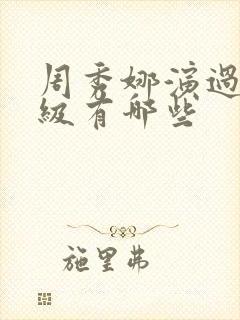 周秀娜演過
級有哪些
施里弗